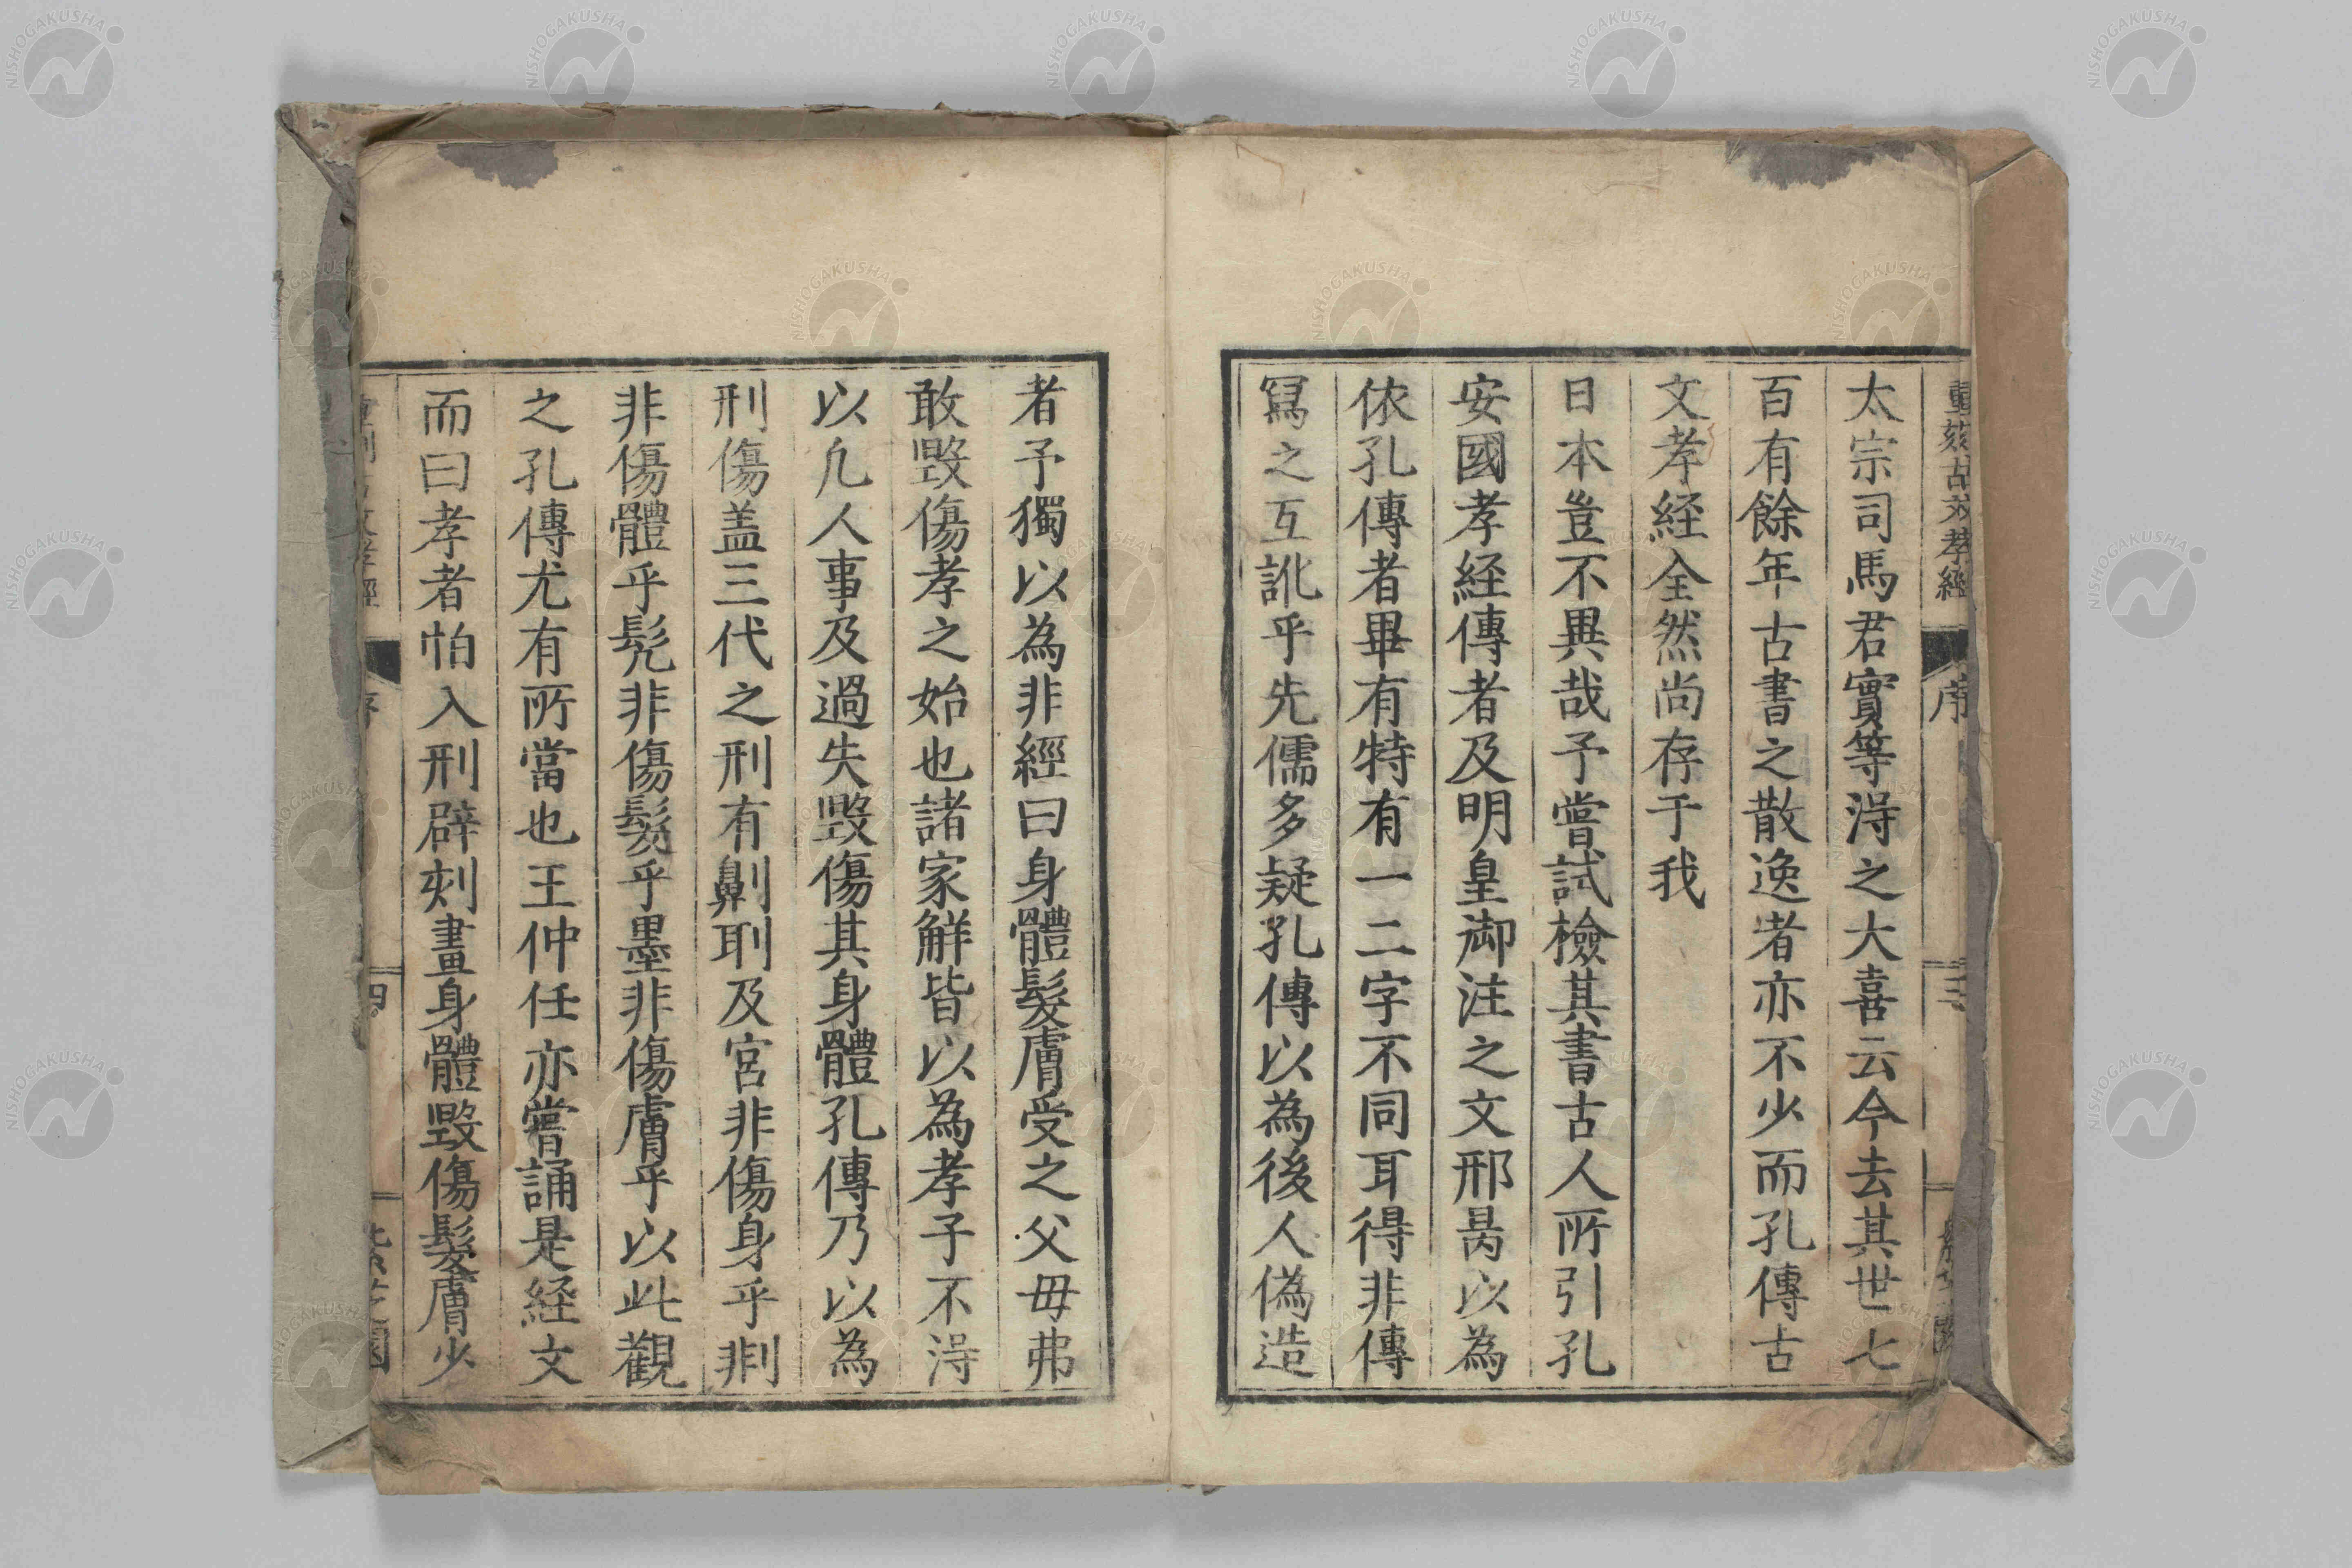 重刻古文孝經
序
三
太宗司馬君實等淂之大喜云今去其世七
百有餘年古書之散逸者亦不少而孔傳古
文孝経全然尚存于我
日本豈不異哉予嘗試檢其書古人所引孔
安國孝経傳者及明皇御注之文邢昺以為
依孔傳者畢有特有一二字不同耳得非傳
冩之互訛乎先儒多疑孔傳以為後人偽造
者予獨以為非經曰身體髮膚受之父母弗
敢毀傷孝之始也諸家解皆以為孝子不淂
以凡人事及過失毀傷其身體孔傳乃以為
刑傷盖三代之刑有劓刵及宮非傷身乎剕
非傷體乎髡非傷髮乎墨非傷膚乎以此觀
之孔傳尤有所當也王仲任亦嘗誦是経文
而曰孝者怕入刑辟刻畫身體毀傷髮膚少
序
四
紫芝園
NISHOGAKUSHA